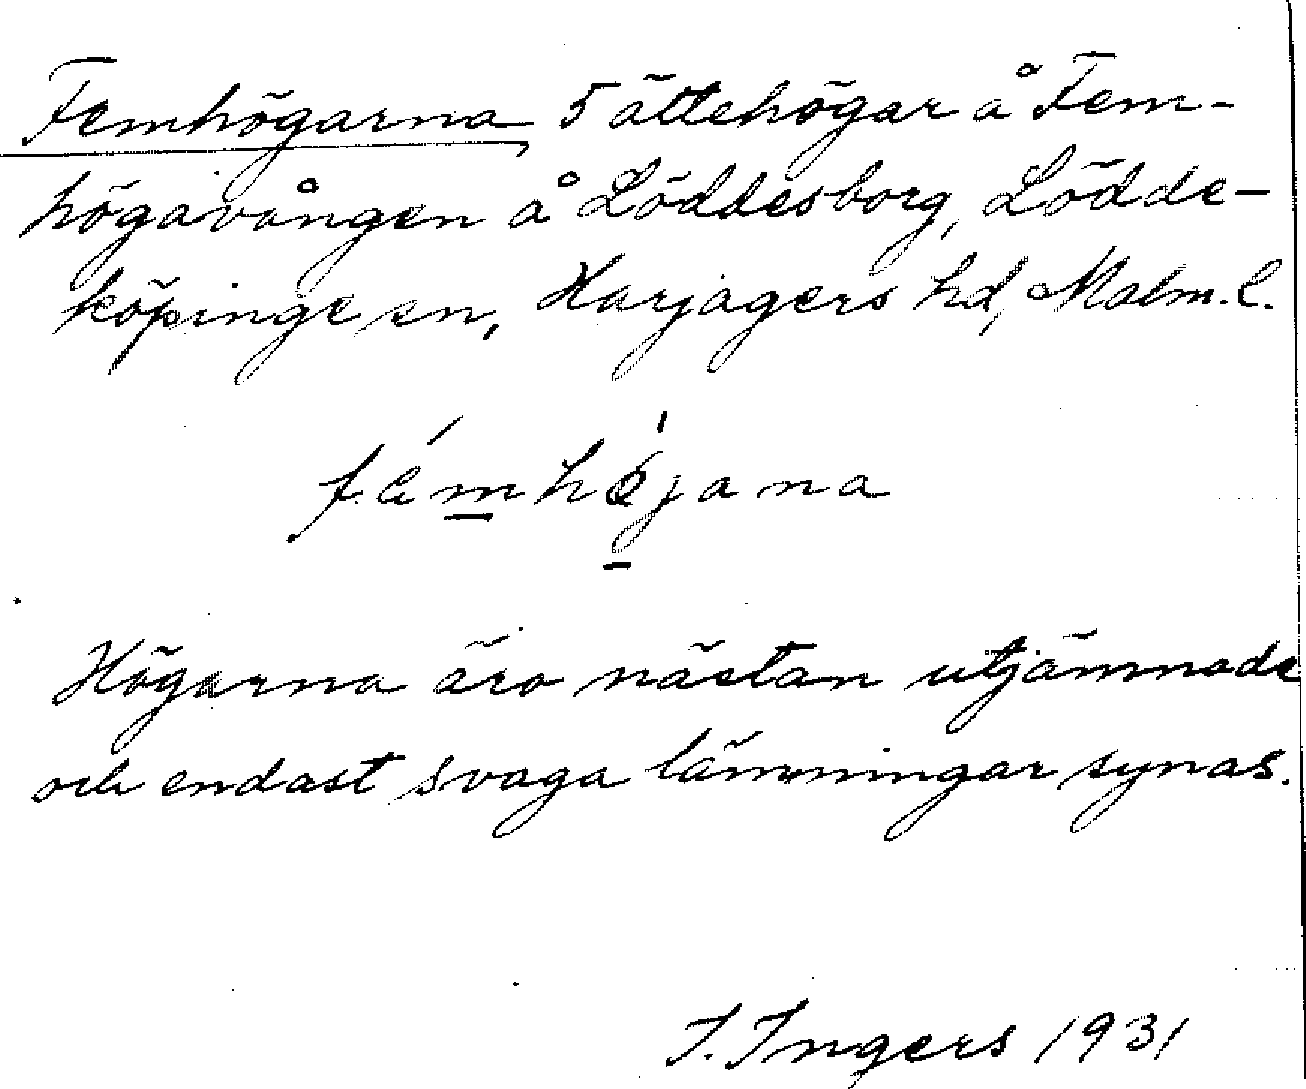 Femhögarna, 5 ättehögar å Fem-
högavången å Löddesborg, Lödde-
köpinge sn, Harjagers hd, Malm. l.
fémhǿjana
Högarna äro nästan utjämnade
och endast svaga lämningar synas.
I. Ingers 1931